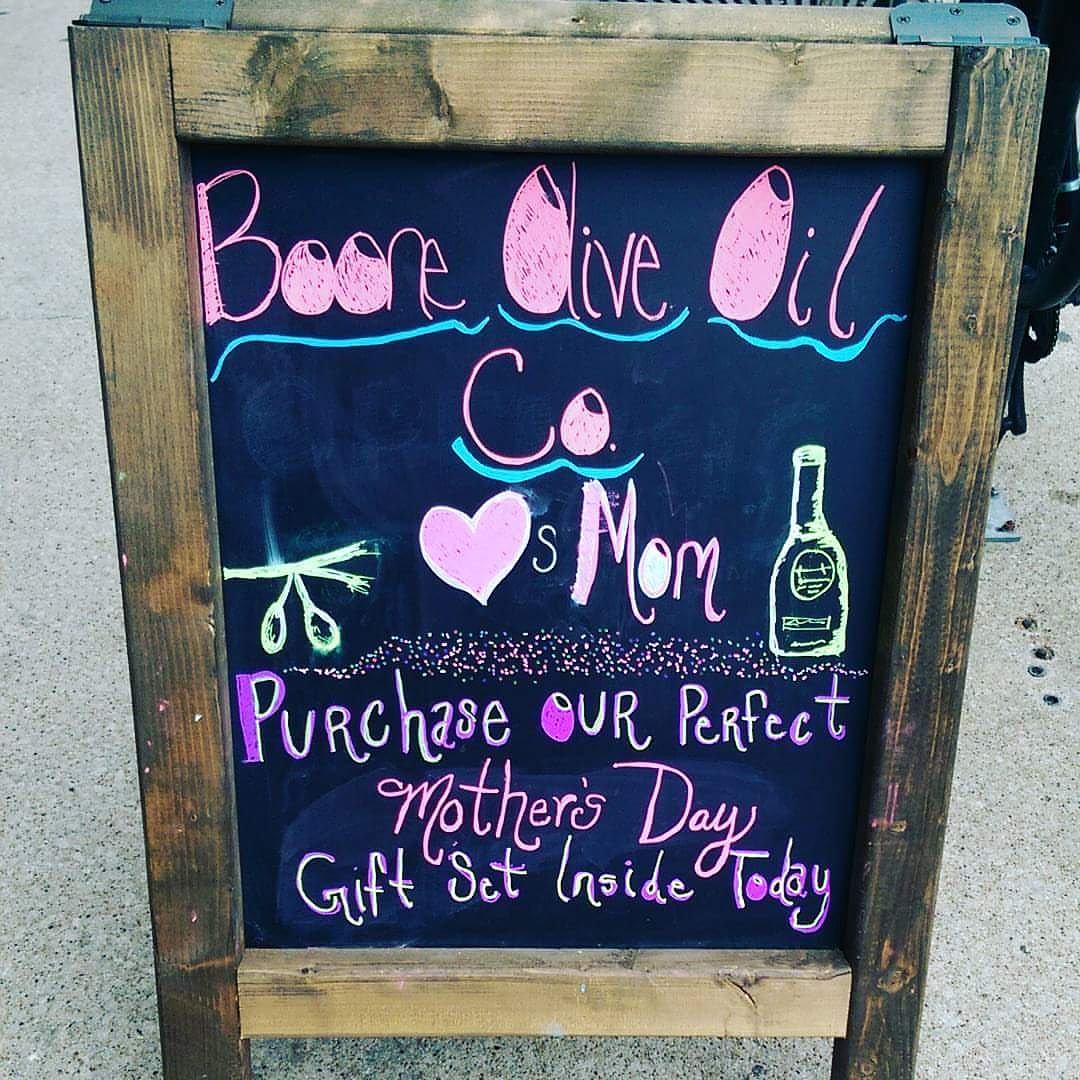 Boone Olive Oil
Co.
♥s Mom
Purchase OUR Perfect
Mother's Day
Gift Set Inside Today